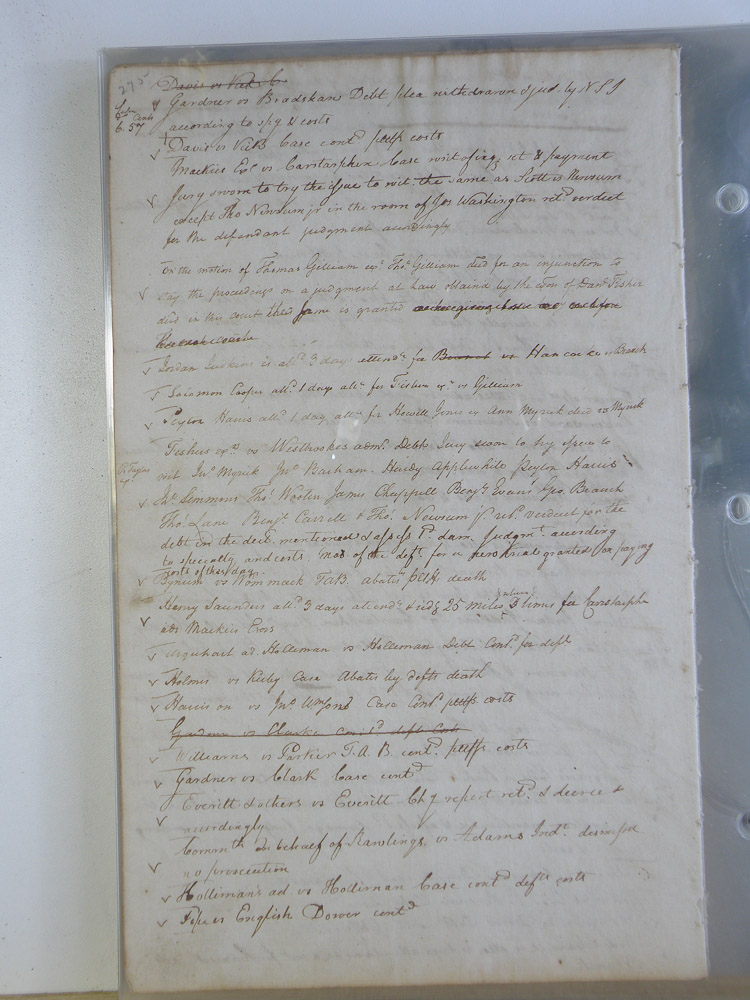 275
Davis vs Vick C
Gardner vs Bradshaw Debt plea withdrawn & jud. by N S I
Cents
6.57
according to spy & costs
Davis vs Vick Case cont.d pltffs costs
Mackies Exs vs Carstarphen Case writ of inq. set & payment
Jury sworn to try the issue to wit. the same as Scott vs Newsum
except Tho Newsum jr in the room of Jos Washington ret.d verdict
for the defendant judgment accordingly
On the motion of Thomas Gilliam exr. Tho.s Gilliam dec'd for an injunction to
stay the proceedings on a judgment at Law obtained by the exors of Dan.l Fisher
dec'd in this court the same is granted
Jordan Judkins is all.d 3 days attend.ce for Branch vs Hancocke vs Branch
Solomon Cooper all.d 1 days att.e for Fishers exr. vs Gilliam
Peyton Harris all.d 1 day att.e for Howell Jones vs Ann Myrick dec'd vs Myrick
Fishers exrs vs Westbrookes adm.r Debt Jury sworn to try issue to
wit Jn.o Myrick Jn.o Barham Henry Applewhite Peyton Harris
Jn.o Simmons Tho.s Wooten James Chappell Benj.n Evans Geo. Branch
Tho.s Lane Benj.n Carrell & Tho.s Newsum jr. ret.d verdict for the
debt in the decl. mentioned & assess 1d. dam. judgm.t according
to specialty and costs. mo. of the deft. for a new trial granted on paying
costs of this day
Bynum vs Wommack TAB. abates pltffs death
Henry Saunders all.d 3 days attend.ce & ridg 25 miles 3 times for Carstarphen
ads Mackies Exors
Urquhart ad. Holleman vs Holleman Debt Cont.d for deft
Holmes vs Kirby Case Abates by defts death
Harrison vs Jn.o Wmsons Case Cont.d pltffs costs
Gardner vs Clarke cont.d defts Costs
Williams vs Parker T.A.B. cont.d pltffs costs
Gardner vs Clark Case cont.d
Everitt & others vs Everitt Ch.y report ret.d & decree
accordingly
Comm.th on behalf of Rawlings vs Adams Ind.t dismissed
no prosecution
Holliman's ad vs Holliman Case cont.d defts costs
Pope vs English Dower cont.d